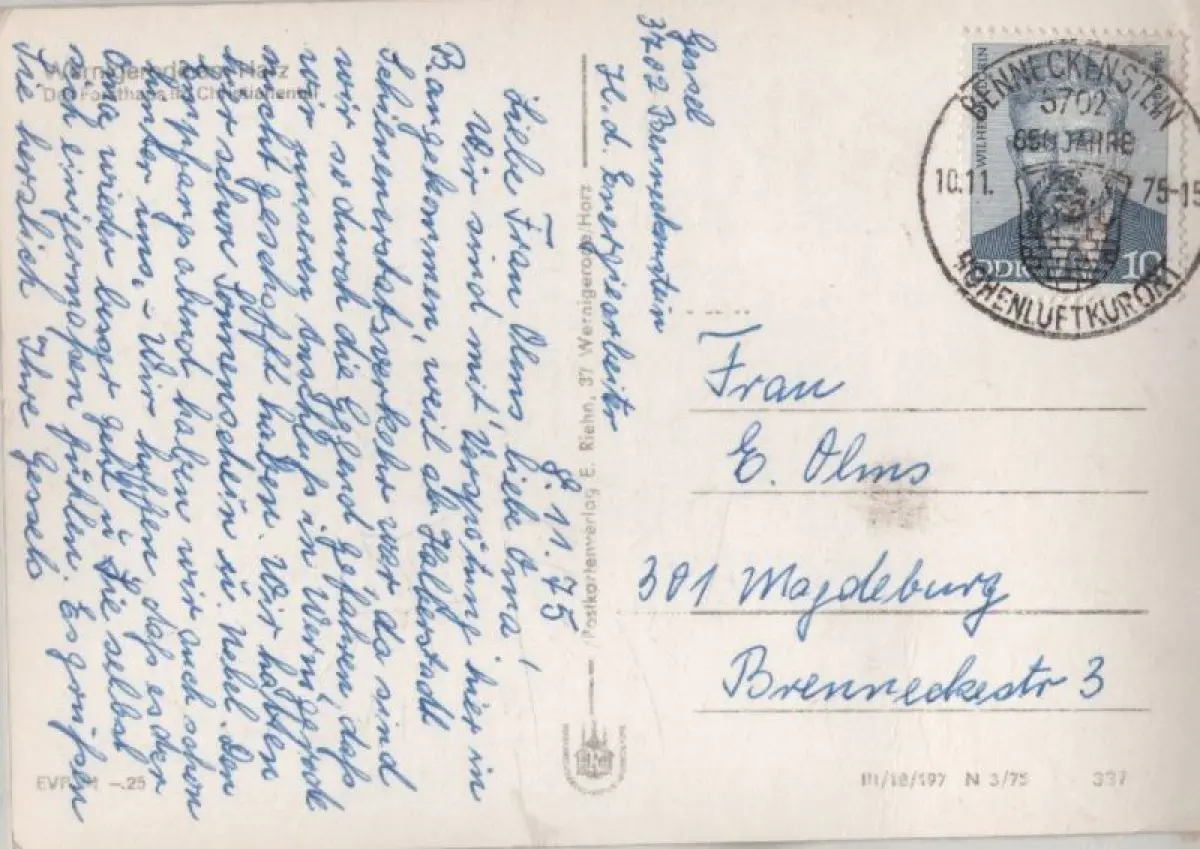 Wernigerode am Harz
Das Forsthaus im Christianental
Gessel
3702 Benneckenstein
H. d. Energiearbeiter
8.11.75
Liebe Frau Olms, liebe Oma!
Wir sind mit Verspätung hier in
B. angekommen, weil ab Halberstadt
Schienenersatzverkehr war, da sind
wir so durch die Gegend gefahren, daß
wir unseren Anschluß in Wernigerode
nicht geschafft haben. Wir hatten
hier schon Sonnenschein u. Nebel. Den
Empfangsabend haben wir auch schon
hinter uns. – Wir hoffen, daß es der
Oma wieder besser geht u. Sie selbst
sich einigermaßen fühlen. Es grüßen
Sie herzlich Ihre Gessels
Postkartenverlag E. Riehn, 37 Wernigerode/Harz
EVP M -.25
BENNECKENSTEIN
3702
650 JAHRE
10.11. 75-15
HÖHENLUFTKURORT
WILHELM
DDR 10
Frau
E. Olms
301 Magdeburg
Brenneckestr 3
III/18/197 N 3/75 337